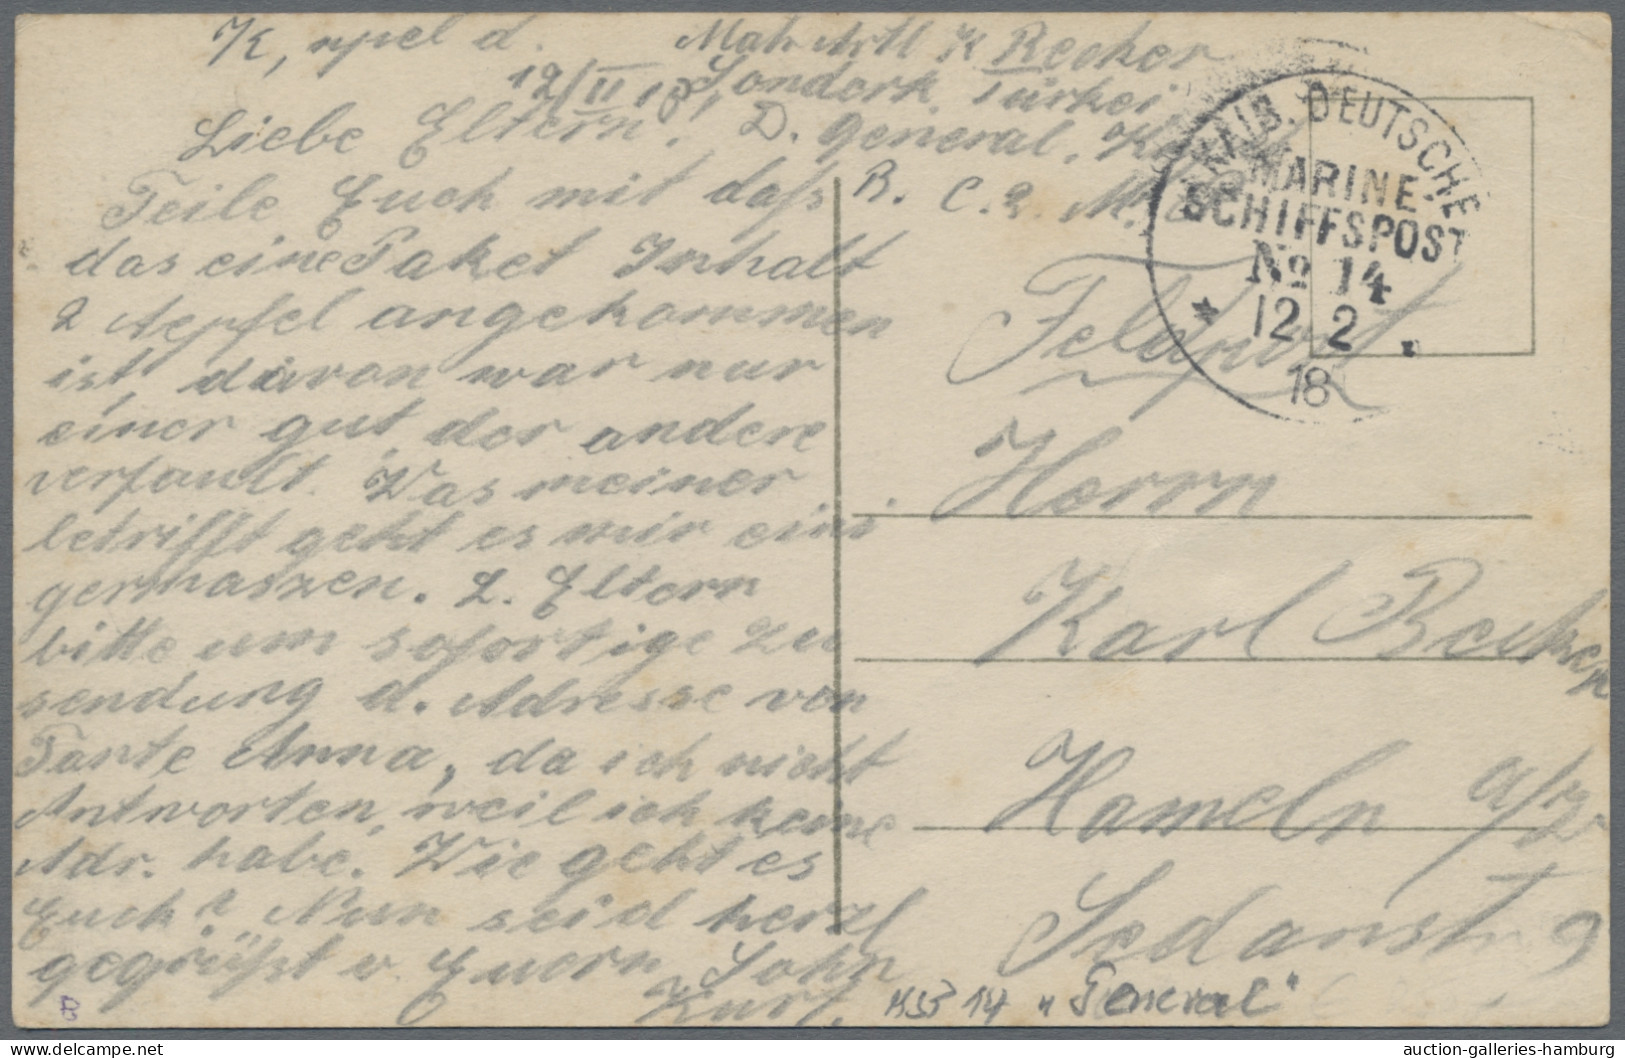 K, opel d.
12/II 18
Matr Artl K Recker
Sonderk. Türkei
D. General,
B. C. 2. M.
KAIS. DEUTSCHE
MARINE-
SCHIFFSPOST
No 14
* 12 2
18
Liebe Eltern!
Teile Euch mit daß
das eine Paket Inhalt
2 Aepfel angekommen
ist, davon war nur
einer gut der andere
verfault. Was meiner
betrifft geht es mir eini
germaszen. L. Eltern
bitte um sofortige zu
sendung d. Adresse von
Tante Anna, da ich nicht
Antworten, weil ich keine
Adr. habe. Wie geht es
Euch? Nun seid herzl
gegrüßt v Euern Sohn
Kurt.
Feldpost
Herrn
Karl Becker
Hameln a/W
Sedanstr 9
MSP 14 "General"
B
auction-galleries-hamburg